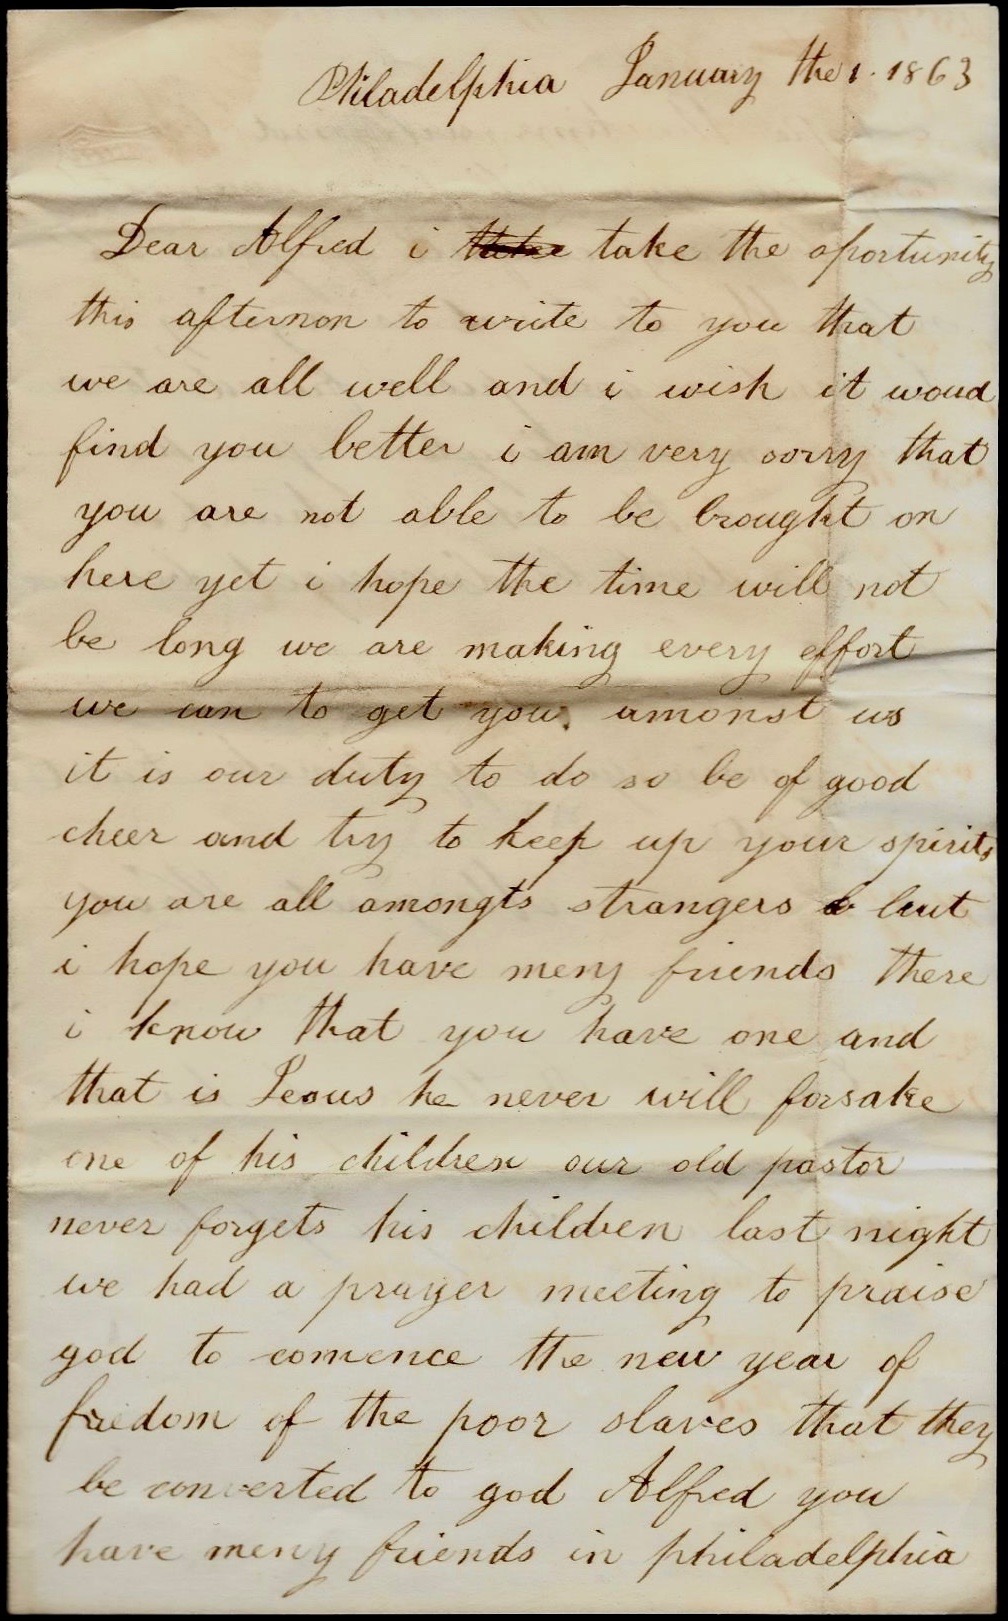 Philadelphia January the 1. 1863
Dear Alfred i take the oportunity
this afternon to write to you that
we are all well and i wish it woud
find you better i am very sorry that
you are not able to be brought on
here yet i hope the time will not
be long we are making every effort
we can to get you amonst us
it is our duty to do so be of good
cheer and try to keep up your spirits
you are all amongts strangers but
i hope you have meny friends there
i know that you have one and
that is Jesus he never will forsake
one of his children our old pastor
never forgets his children last night
we had a prayer meeting to praise
god to comence the new year of
freedom of the poor slaves that they
be converted to god Alfred you
have meny friends in philadelphia